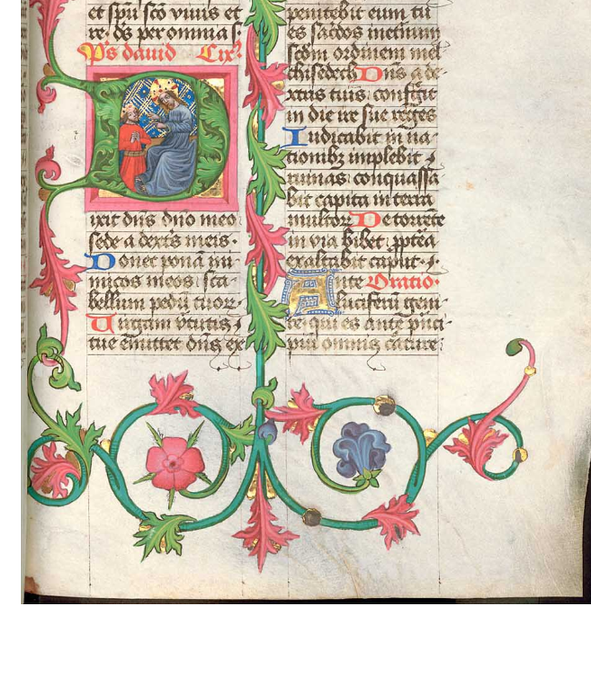 et spũ sco viuis et
re. ds per omnia s.
Ps dauid Cix
Dixit dns dno meo
sede a dextis meis.
Donec ponã ini
micos meos: sca
bellum pedũ tuor
Uirgam vtutis
tue emittet dns ex
penitebit eum tu
es sacdos in
scdm ordinem mel
chisedech Dns a de
xtris tuis: confregit
in die ire sue reges
Iudicabit in na
tionibz implebit
ruinas: conquassa
bit capita in terra
multor De torrete
in via bibet: pptea
exaltabit caput.
Ante Oratio.
luciferũ geni
te qui es ante pnci
piũ omnis creature: